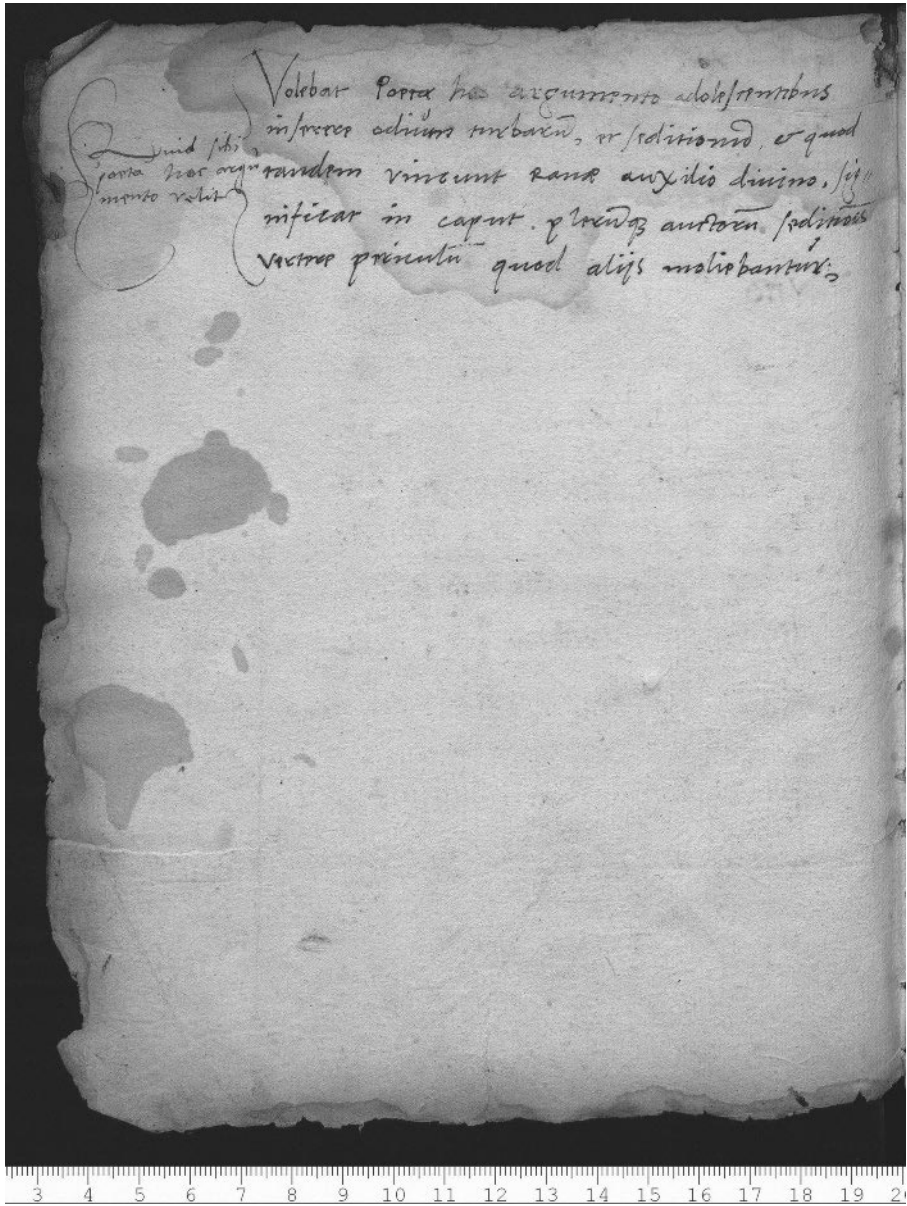 Quid sibi
poeta hoc argu
mento velit
Volebat Poeta hoc argumento adolescentibus
inserere odium turbarū, et seditionū, & quod
tandem vincunt ranæ auxilio divino, sig=
nificat in caput plerūq; auctorū seditiōis
vertere periculū quod alijs moliebantur;
3 4 5 6 7 8 9 10 11 12 13 14 15 16 17 18 19